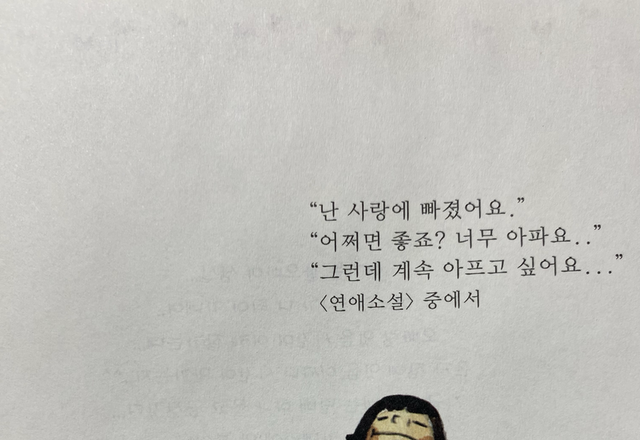 “난 사랑에 빠졌어요.”
“어쩌면 좋죠? 너무 아파요..”
“그런데 계속 아프고 싶어요...”
〈연애소설〉 중에서